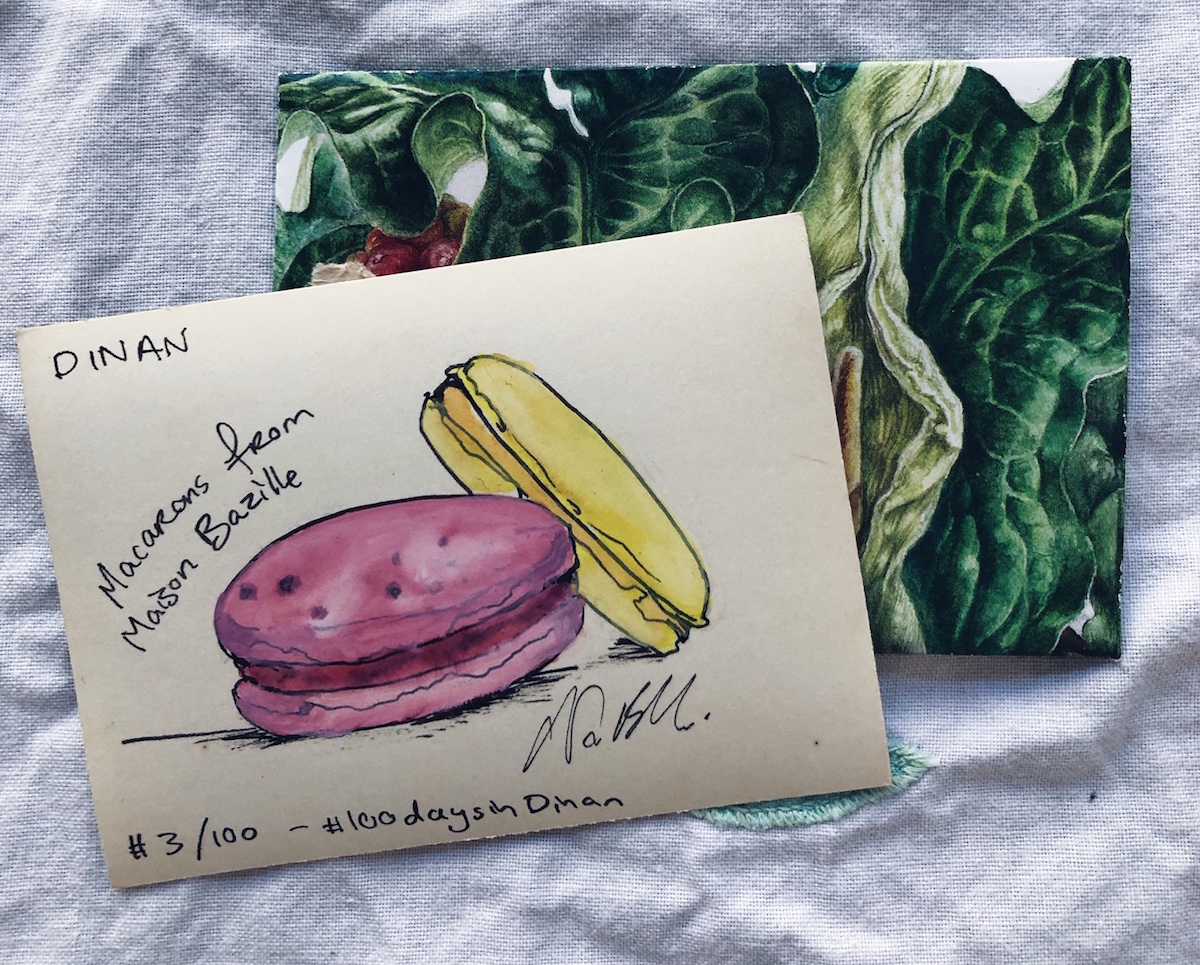 DINAN
Macarons from
Maison Bazille
#3/100 - #100daysinDinan